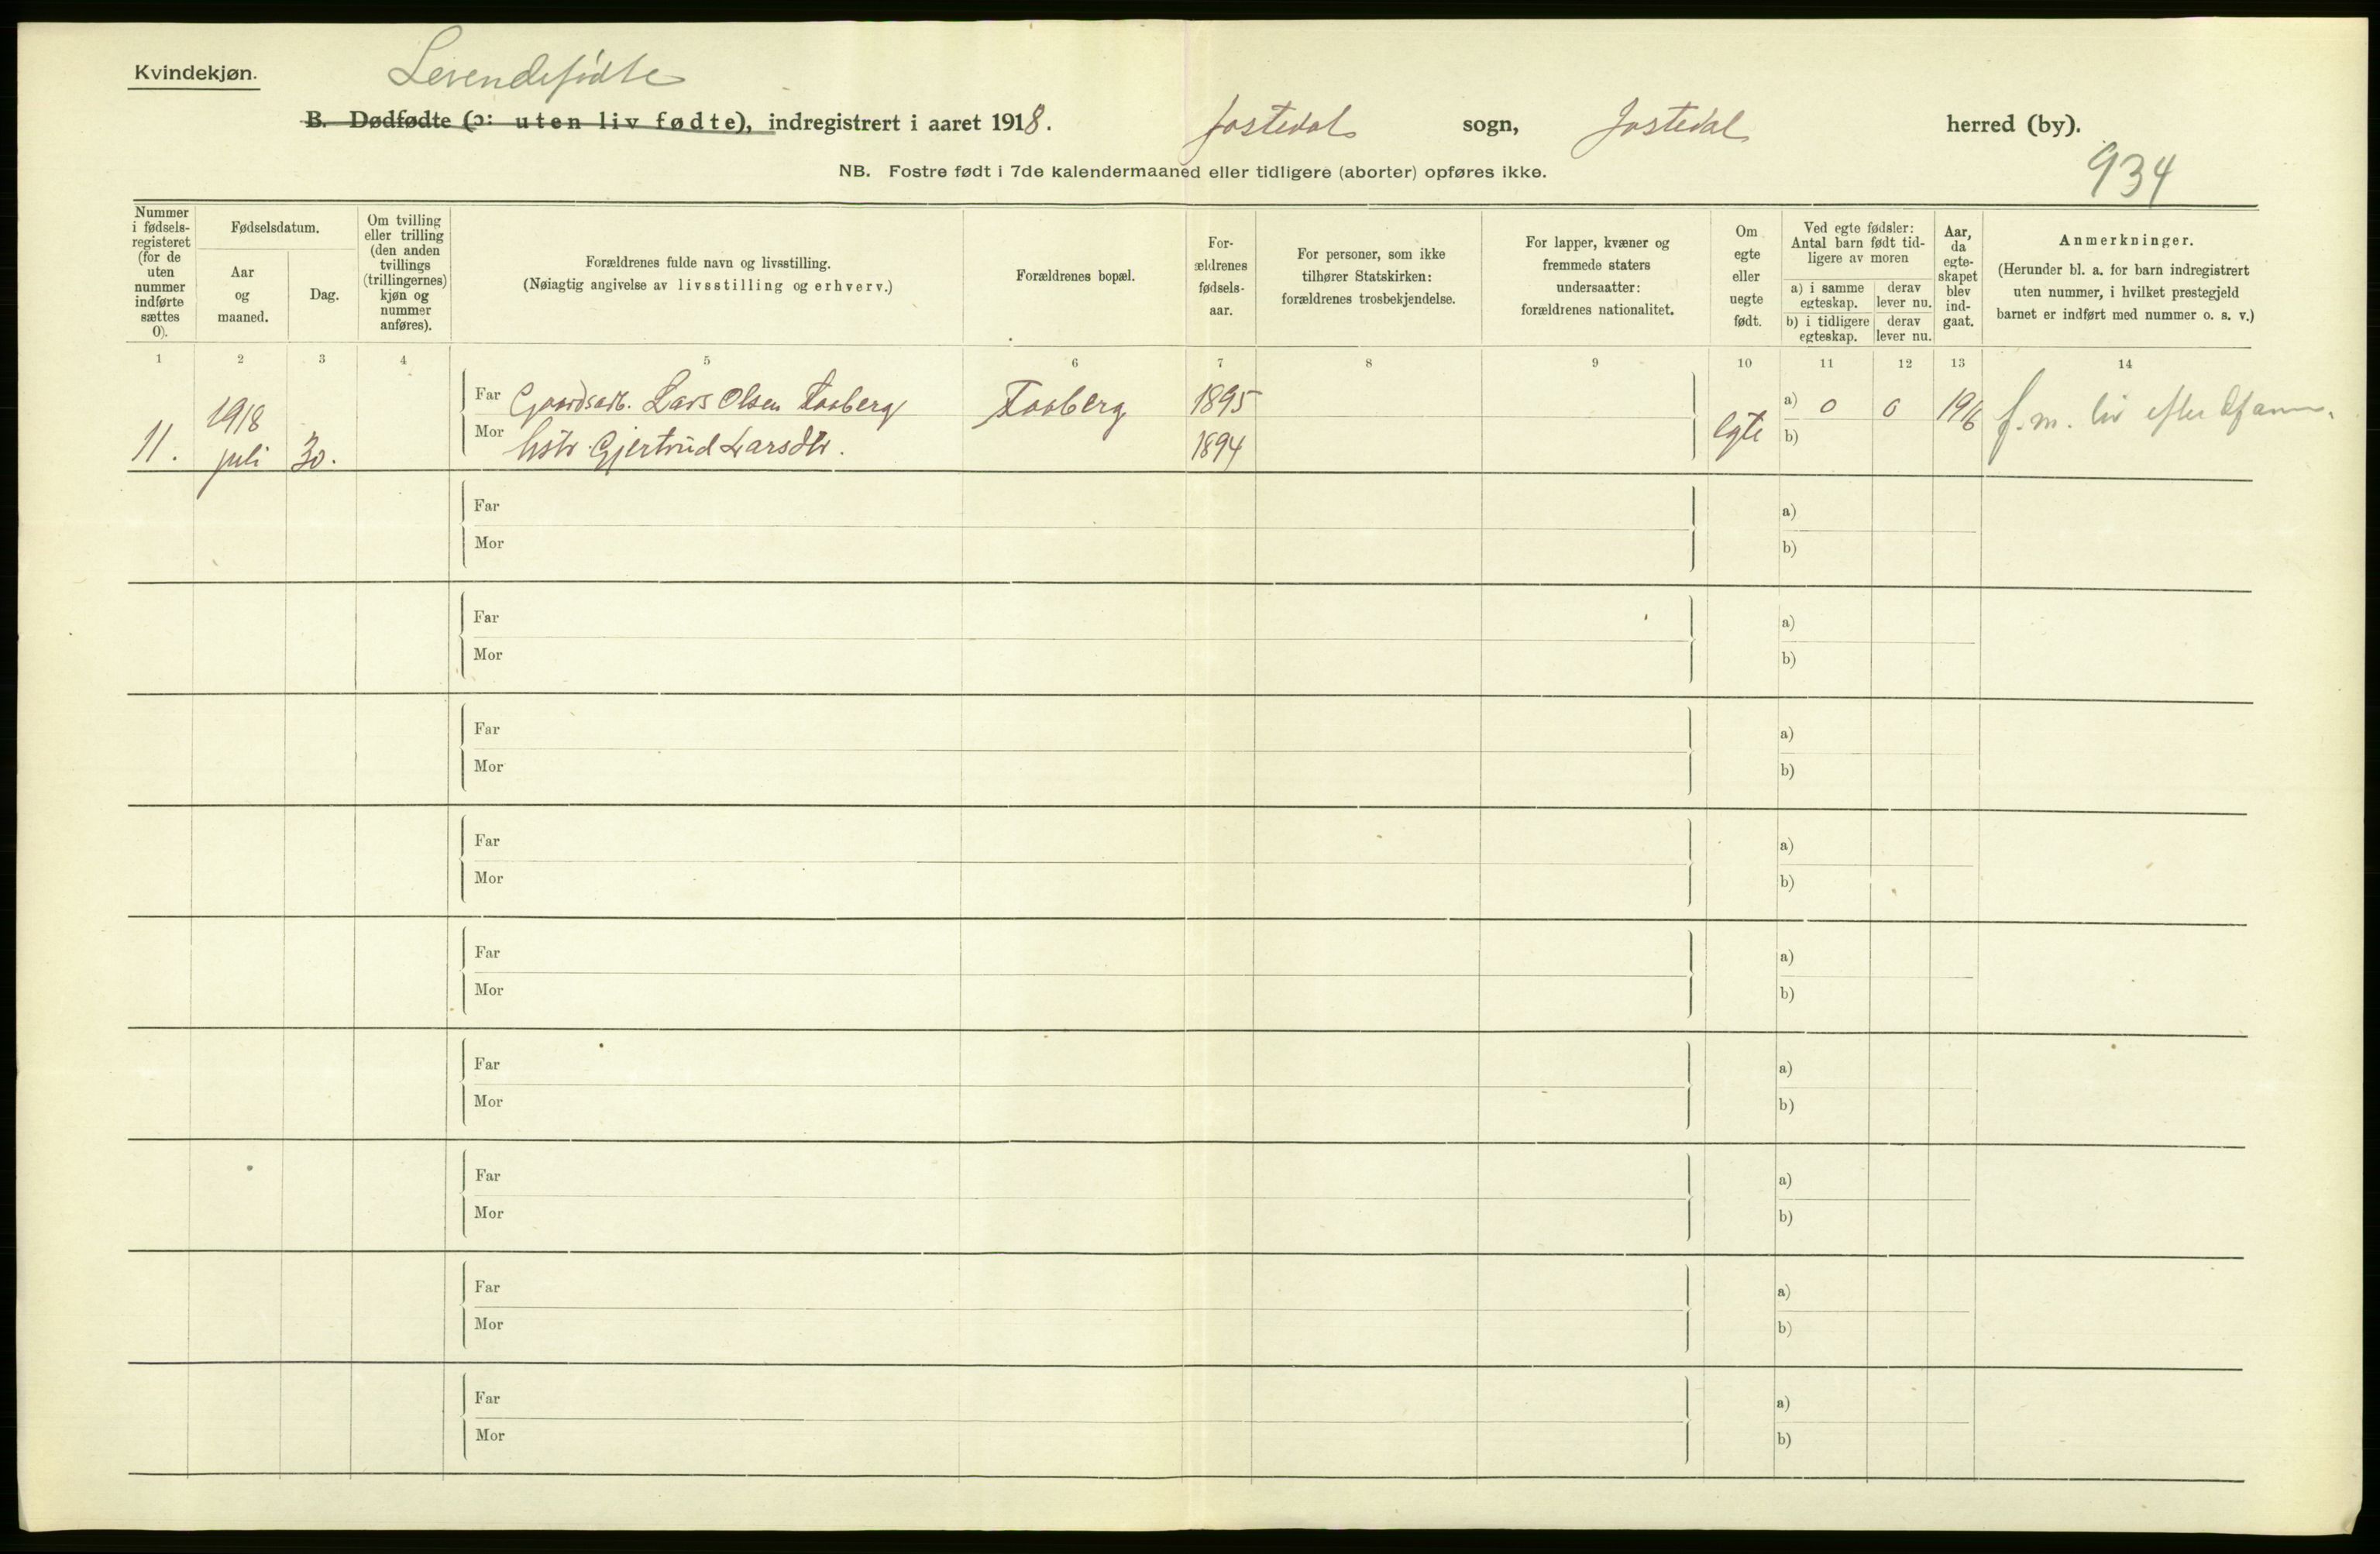 Kvindekjøn.
Levendefødte
B. Dødfødte (ɔ: uten liv fødte), indregistrert i aaret 1918. Jostedal sogn, Jostedal herred (by).
NB. Fostre født i 7de kalendermaaned eller tidligere (aborter) opføres ikke.
934
Nummer
i fødsels-
registeret
(for de
uten
nummer
indførte
sættes
0).
Fødselsdatum.
Aar
og
maaned.
Dag.
Om tvilling
eller trilling
(den anden
tvillings
(trillingernes)
kjøn og
nummer
anføres).
Forældrenes fulde navn og livsstilling.
(Nøiagtig angivelse av livsstilling og erhverv.)
Forældrenes bopæl.
For-
ældrenes
fødsels-
aar.
For personer, som ikke
tilhører Statskirken:
forældrenes trosbekjendelse.
For lapper, kvæner og
fremmede staters
undersaatter:
forældrenes nationalitet.
Om
egte
eller
uegte
født.
Ved egte fødsler:
Antal barn født tid-
ligere av moren
a) i samme
egteskap.
derav
lever nu.
b) i tidligere
egteskap.
derav
lever nu.
Aar,
da
egte-
skapet
blev
ind-
gaat.
Anmerkninger.
(Herunder bl. a. for barn indregistrert
uten nummer, i hvilket prestegjeld
barnet er indført med nummer o. s. v.)
1 2 3 4 5 6 7 8 9 10 11 12 13 14
11. 1918 juli 30.
Far Gaardsarb. Lars Olsen Faaberg Faaberg 1895
Mor hstr. Gjertrud Larsdtr. 1894
egte a) 0 0 1916 f. m. liv efter
b)
Far a)
Mor b)
Far a)
Mor b)
Far a)
Mor b)
Far a)
Mor b)
Far a)
Mor b)
Far a)
Mor b)
Far a)
Mor b)
Far a)
Mor b)
Far a)
Mor b)